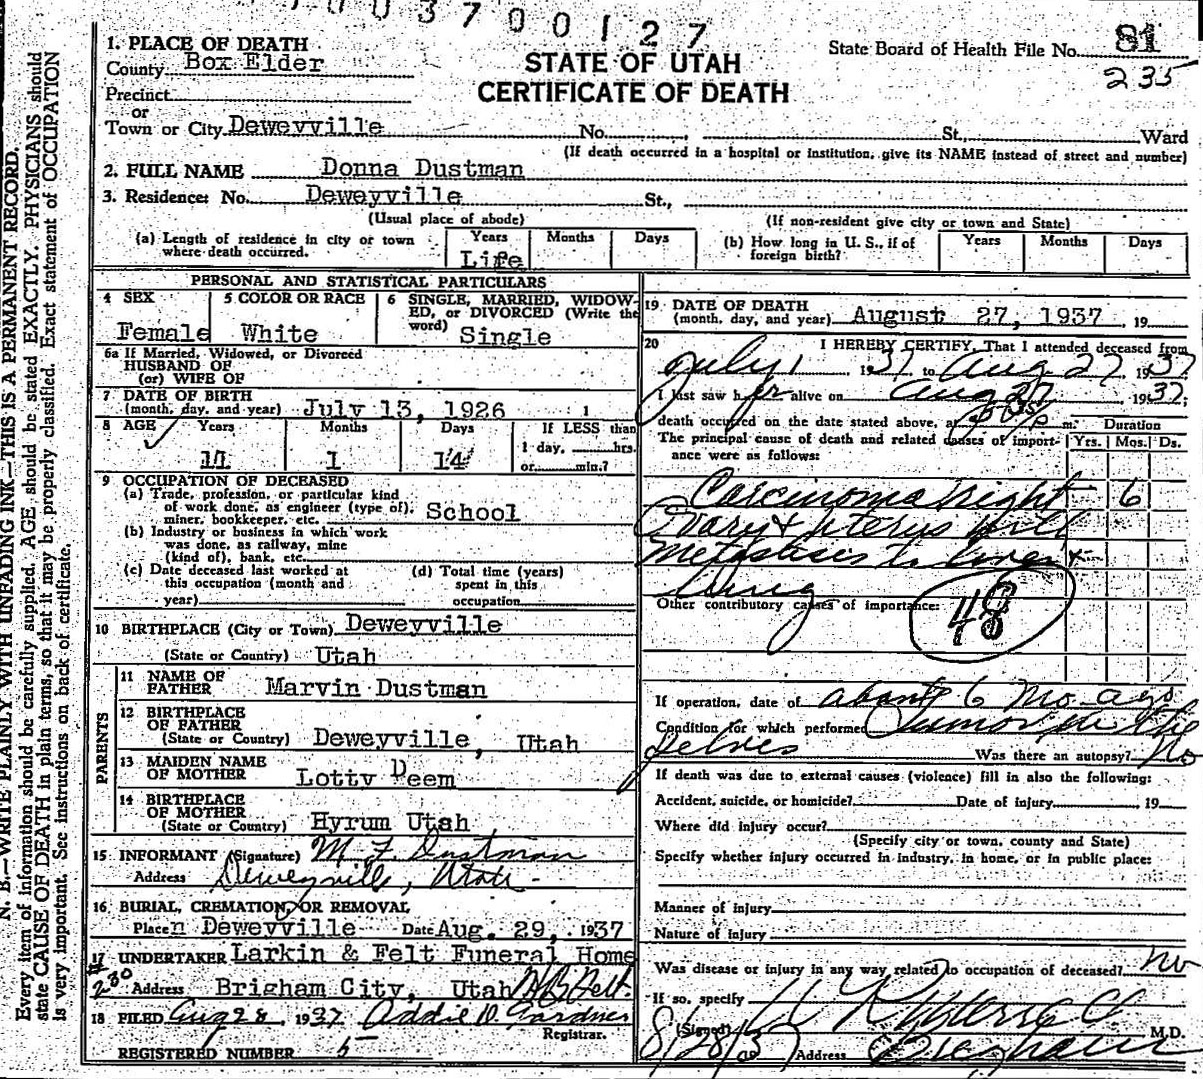 003700127
1. PLACE OF DEATH
County Box Elder
Precinct
or
Town or City Deweyville No. St. Ward
STATE OF UTAH
CERTIFICATE OF DEATH
State Board of Health File No. 81
235
(If death occurred in a hospital or institution, give its NAME instead of street and number)
2. FULL NAME Donna Dustman
3. Residence: No. Deweyville St.,
(Usual place of abode) (If non-resident give city or town and State)
(a) Length of residence in city or town where death occurred. Years Months Days
Life
(b) How long in U. S., if of foreign birth? Years Months Days
PERSONAL AND STATISTICAL PARTICULARS
4 SEX Female
5 COLOR OR RACE White
6 SINGLE, MARRIED, WIDOWED, or DIVORCED (Write the word) Single
6a If Married, Widowed, or Divorced
HUSBAND OF
(or) WIFE OF
7 DATE OF BIRTH
(month, day, and year) July 13, 1926
8 AGE Years Months Days If LESS than
11 1 14 1 day, hrs.
or min.?
9 OCCUPATION OF DECEASED
(a) Trade, profession, or particular kind
of work done, as engineer (type of), School
miner, bookkeeper, etc.
(b) Industry or business in which work
was done, as railway, mine
(kind of), bank, etc.
(c) Date deceased last worked at
this occupation (month and
year)
(d) Total time (years)
spent in this
occupation
10 BIRTHPLACE (City or Town) Deweyville
(State or Country) Utah
PARENTS
11 NAME OF
FATHER Marvin Dustman
12 BIRTHPLACE
OF FATHER
(State or Country) Deweyville, Utah
13 MAIDEN NAME
OF MOTHER Lotty Deem
14 BIRTHPLACE
OF MOTHER
(State or Country) Hyrum Utah
15 INFORMANT (Signature) M. F. Dustman
Address Deweyville, Utah
16 BURIAL, CREMATION, OR REMOVAL
Place Deweyville Date Aug. 29, 1937
17 UNDERTAKER Larkin & Felt Funeral Home
#230 Address Brigham City, Utah
18 FILED Aug 28, 1937 Addie D. Gardner
Registrar.
REGISTERED NUMBER 5
19 DATE OF DEATH
(month, day, and year) August 27, 1937, 19
20 I HEREBY CERTIFY, That I attended deceased from
July 1 1937, to Aug 27, 1937
I last saw her alive on Aug 27 1937;
death occurred on the date stated above, at m. Duration
The principal cause of death and related causes of importance were as follows: Yrs. Mos. Ds.
Carcinoma right 6
Ovary & Uterus with
Metastases to liver +
lung
Other contributory causes of importance:
48
If operation, date of about 6 Mo ago
Condition for which performed Tumor in the
pelves Was there an autopsy? No
If death was due to external causes (violence) fill in also the following:
Accident, suicide, or homicide? Date of injury , 19
Where did injury occur?
(Specify city or town, county and State)
Specify whether injury occurred in industry, in home, or in public place:
Manner of injury
Nature of injury
Was disease or injury in any way related to occupation of deceased? No
If so, specify
(Signed) M.D.
8/28/37 Address Brigham
N. B.—WRITE PLAINLY WITH UNFADING INK—THIS IS A PERMANENT RECORD.
Every item of information should be carefully supplied. AGE should be stated EXACTLY. PHYSICIANS should
state CAUSE OF DEATH in plain terms, so that it may be properly classified. Exact statement of OCCUPATION
is very important. See instructions on back of certificate.